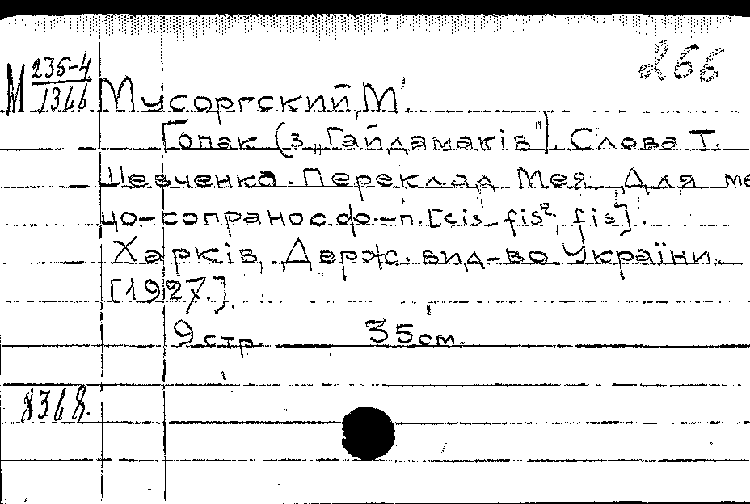 266
М 236-4
1366
Мусоргский, М.
Гопак (з „Гайдамаків"). Слова Т.
Шевченка. Переклад Мея. Для ме
цо-сопрано с ф.-п. [cis-fis², fis].
Харків, Держ. вид-во України.
[1927.]
9 стр. 35 см.
8368.